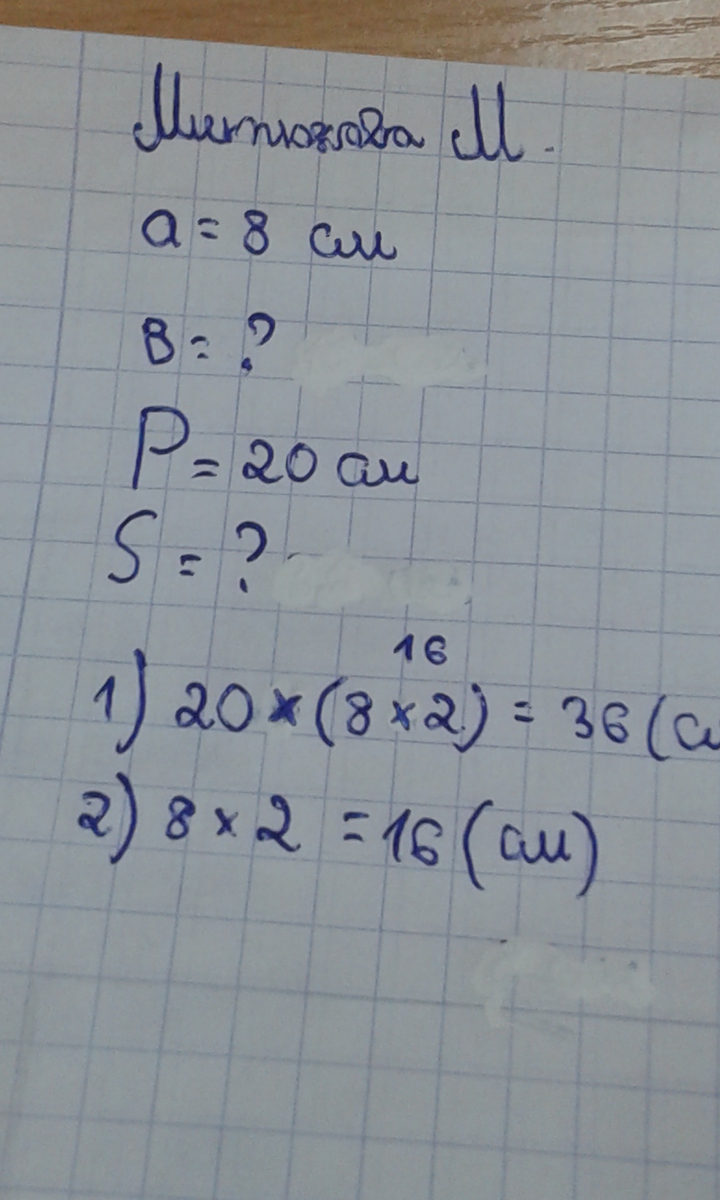 М.
а = 8 см
в = ?
P = 20 см
S = ?
16
1) 20 × (8 × 2) = 36 (с
2) 8 × 2 = 16 (см)